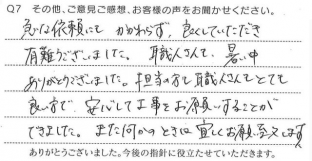 Q7 その他、ご意見ご感想、お客様の声をお聞かせください。
急な依頼にも かかわらず、良くしていただき
有難うございました。 職人さんも、暑い中
ありがとうございました。担当の方も職人さんもとても
良い方で、安心して工事をお願いすることが
できました。また何かのときは宜しくお願い致します
ありがとうございました。今後の指針に役立たせていただきます。